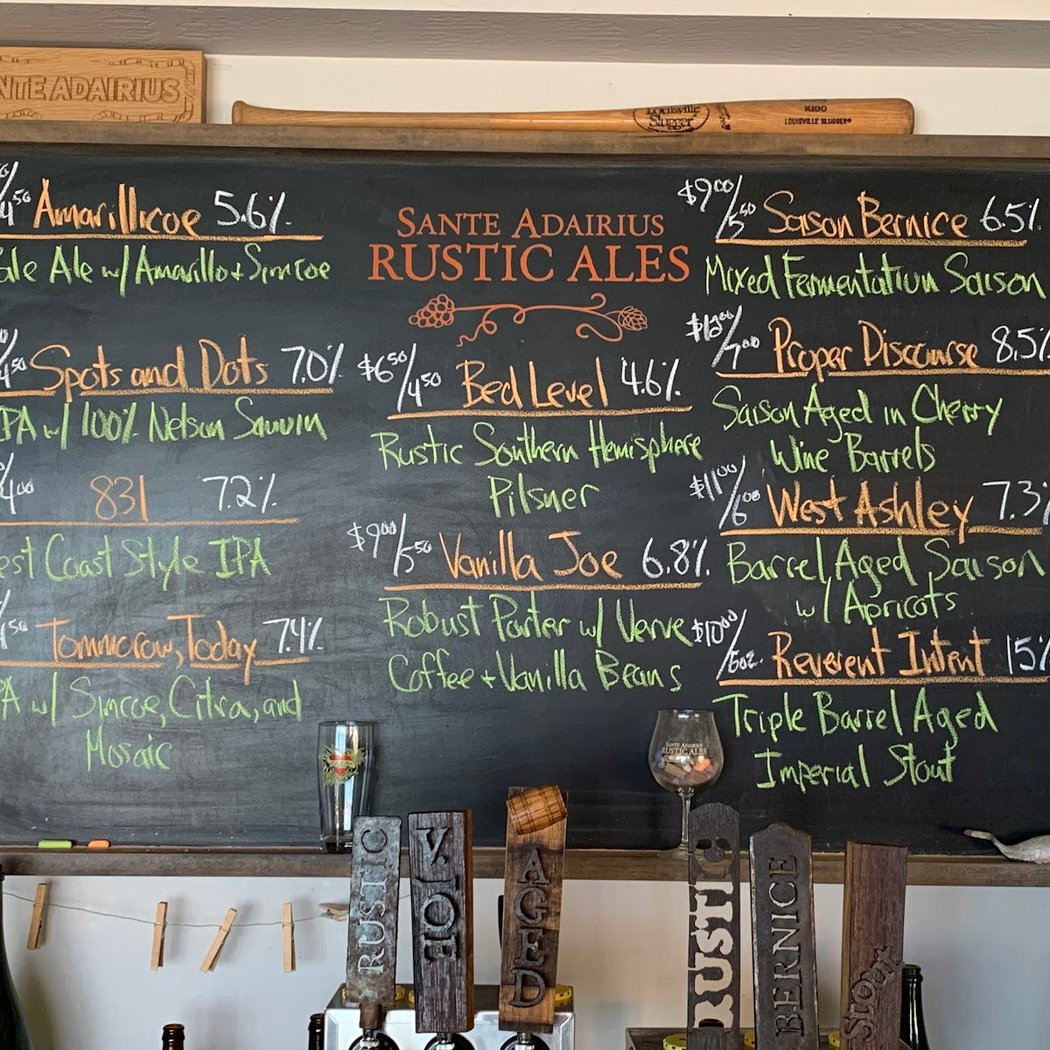 NTE ADAIRIUS
Louisville
Slugger
LOUISVILLE SLUGGER
4.50 Amarillicoe 5.6%
ale Ale w/ Amarillo + Simcoe
4.50 Spots and Dots 7.0%
IPA w/ 100% Nelson Sauvin
4.00 831 7.2%
est Coast Style IPA
.50 Tommorow, Today 7.4%
PA w/ Simcoe, Citra, and
Mosaic
SANTE ADAIRIUS
RUSTIC ALES
$6.50/4.50 Bed Level 4.6%
Rustic Southern Hemisphere
Pilsner
$9.00/5.50 Vanilla Joe 6.8%
Robust Porter w/ Verve
Coffee + Vanilla Beans
$9.00/5.50 Saison Bernice 6.5%
Mixed Fermentation Saison
/7.00 Proper Discourse 8.5%
Saison Aged in Cherry
Wine Barrels
$11.00/6.00 West Ashley 7.3%
Barrel Aged Saison
w/ Apricots
$10.00/5oz. Reverent Intent 15%
Triple Barrel Aged
Imperial Stout
SANTE ADAIRIUS
RUSTIC ALES
RUSTIC
V. JOE
AGED
RUSTIC
BERNICE
STOUT